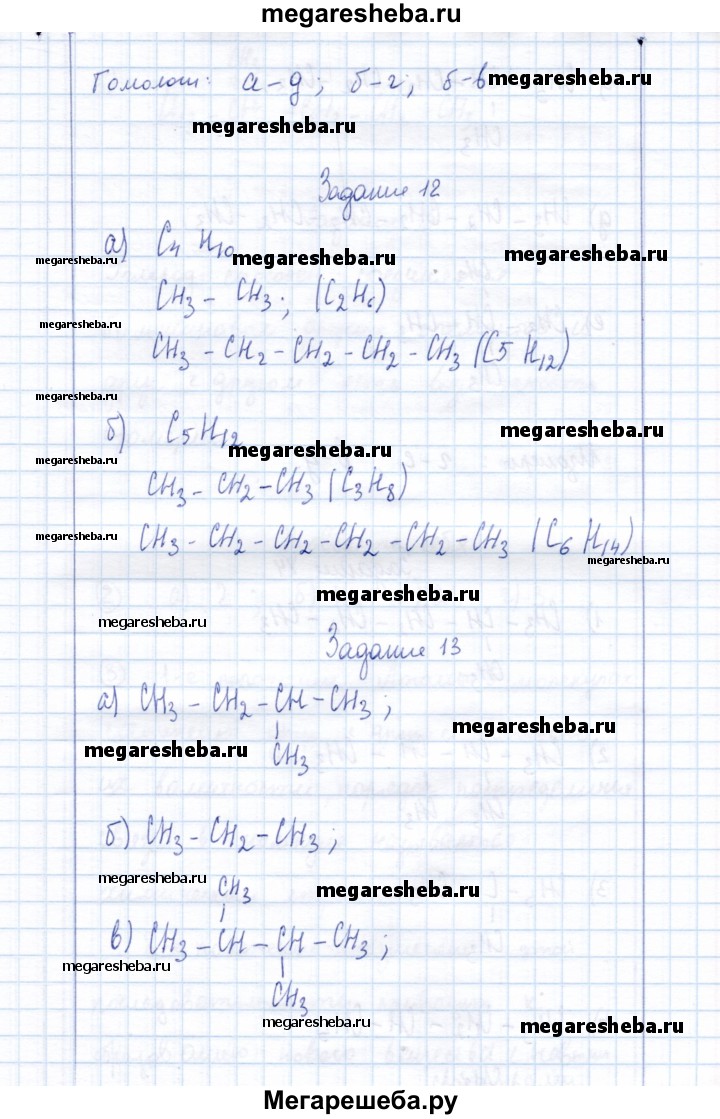 megaresheba.ru
Гомологи: а-д; б-г; б-в megaresheba.ru
megaresheba.ru
CH3
Задание 12
а) C4 H10
megaresheba.ru megaresheba.ru megaresheba.ru
CH3 - CH3; (C2H6)
megaresheba.ru
CH3 - CH2 - CH2 - CH2 - CH3 (C5 H12)
megaresheba.ru
б) C5H12 megaresheba.ru
megaresheba.ru megaresheba.ru
CH3 - CH2 - CH3 (C3H8)
megaresheba.ru CH3 - CH2 - CH2 - CH2 - CH2 - CH3 (C6 H14)
megaresheba.ru
megaresheba.ru
megaresheba.ru
Задание 13
а) CH3 - CH2 - CH - CH3;
megaresheba.ru
megaresheba.ru CH3
б) CH3 - CH2 - CH3;
megaresheba.ru
CH3 megaresheba.ru
в) CH3 - CH - CH - CH3;
megaresheba.ru
CH3
megaresheba.ru megaresheba.ru
Мегарешеба.ру